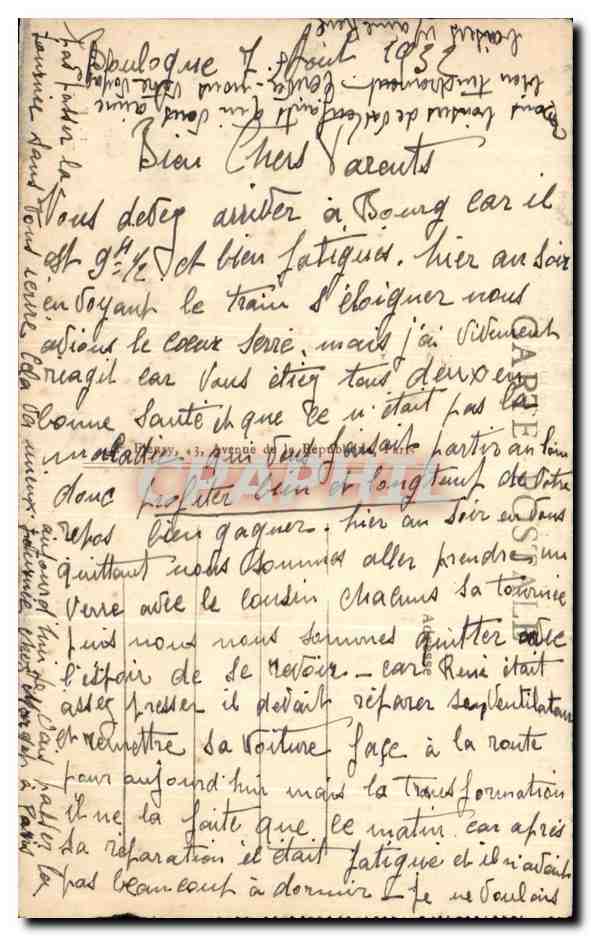 Boulogne 7 Août 1932
Bien Chers Parents
Vous devez arriver à Bourg car il
est 9H 1/2 et bien fatigués. hier au soir
en voyant le train s'éloigner nous
avions le cœur serré, mais j'ai vivement
réagit car vous étiez tous deux en
bonne santé et que ce n'était pas la
maladie qui vous faisait partir au loin
donc profiter bien et longtemp de votre
repos bien gagner. hier au soir en vous
quittant nous sommes aller prendre un
verre avec le cousin chacuns sa tournée
puis nous nous sommes quitter avec
l'espoir de se revoir - car René était
assez presser il devait réparer son ventilateur
et remettre sa voiture façe à la route
pour aujourd'hui mais la transformation
il ne la faite que ce matin car après
sa réparation il était fatigué et il n'avait
pas beaucoup à dormir - je ne voulais
pas passer la
journée sans vous écrire cela va mieux
aujourd'hui je vais passer la
journée chez à Paris
bons baisers de vos enfants qui vous aime
bien tendrement. écrivez-nous votre voyage
baisers
CARTE POSTALE
Adresse
Fleury, 43, Avenue de la République, Paris
CPAPHIL